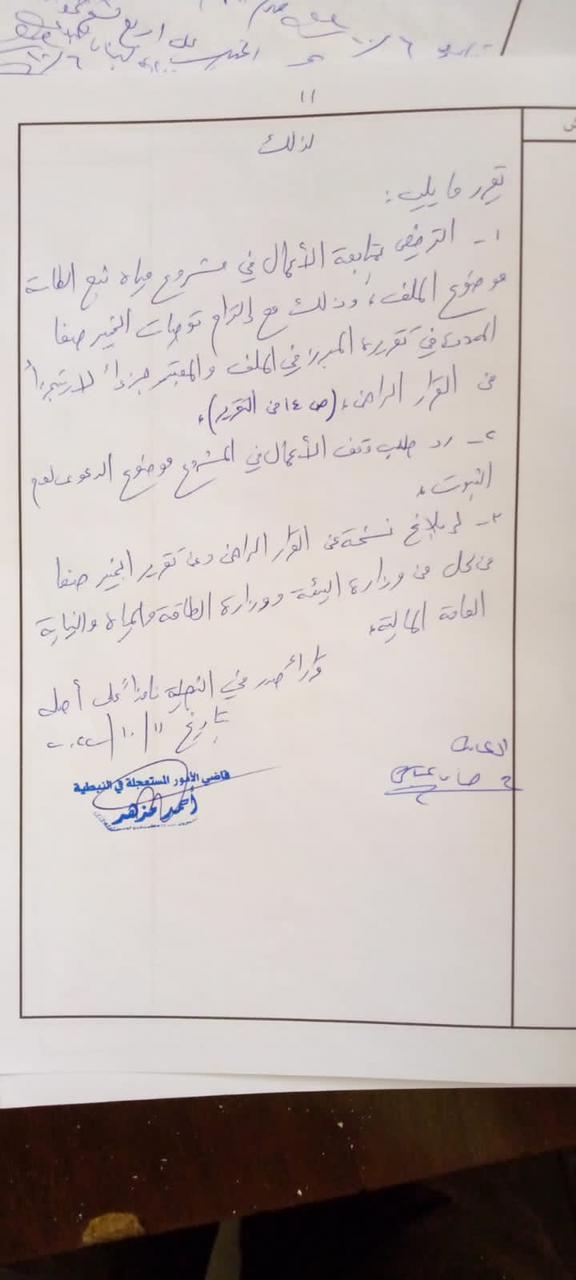 ١١
لذلك
تقرر ما يلي:
١- الترخيص بمتابعة الأعمال في مشروع مياه نبع الطاسة
موضوع الملف، وذلك مع إلزام توصيات الخبير صفا
المحددة في تقريره المبرز في الملف والمعتبر جزءاً لا يتجزأ
من القرار الراهن، (ص ١٤ من التقرير).
٢- رد طلب وقف الأعمال في المشروع موضوع الدعوى لعدم
الثبوت.
٣- إبلاغ نسخة عن القرار الراهن وعن تقرير الخبير صفا
من كل من وزارة البيئة ووزارة الطاقة والمياه والنيابة
العامة المالية.
قراراً صدر في النبطية نافذاً على أصله
بتاريخ ١١/١٠/٢٠٢٢
قاضي الأمور المستعجلة في النبطية
أحمد مزهر